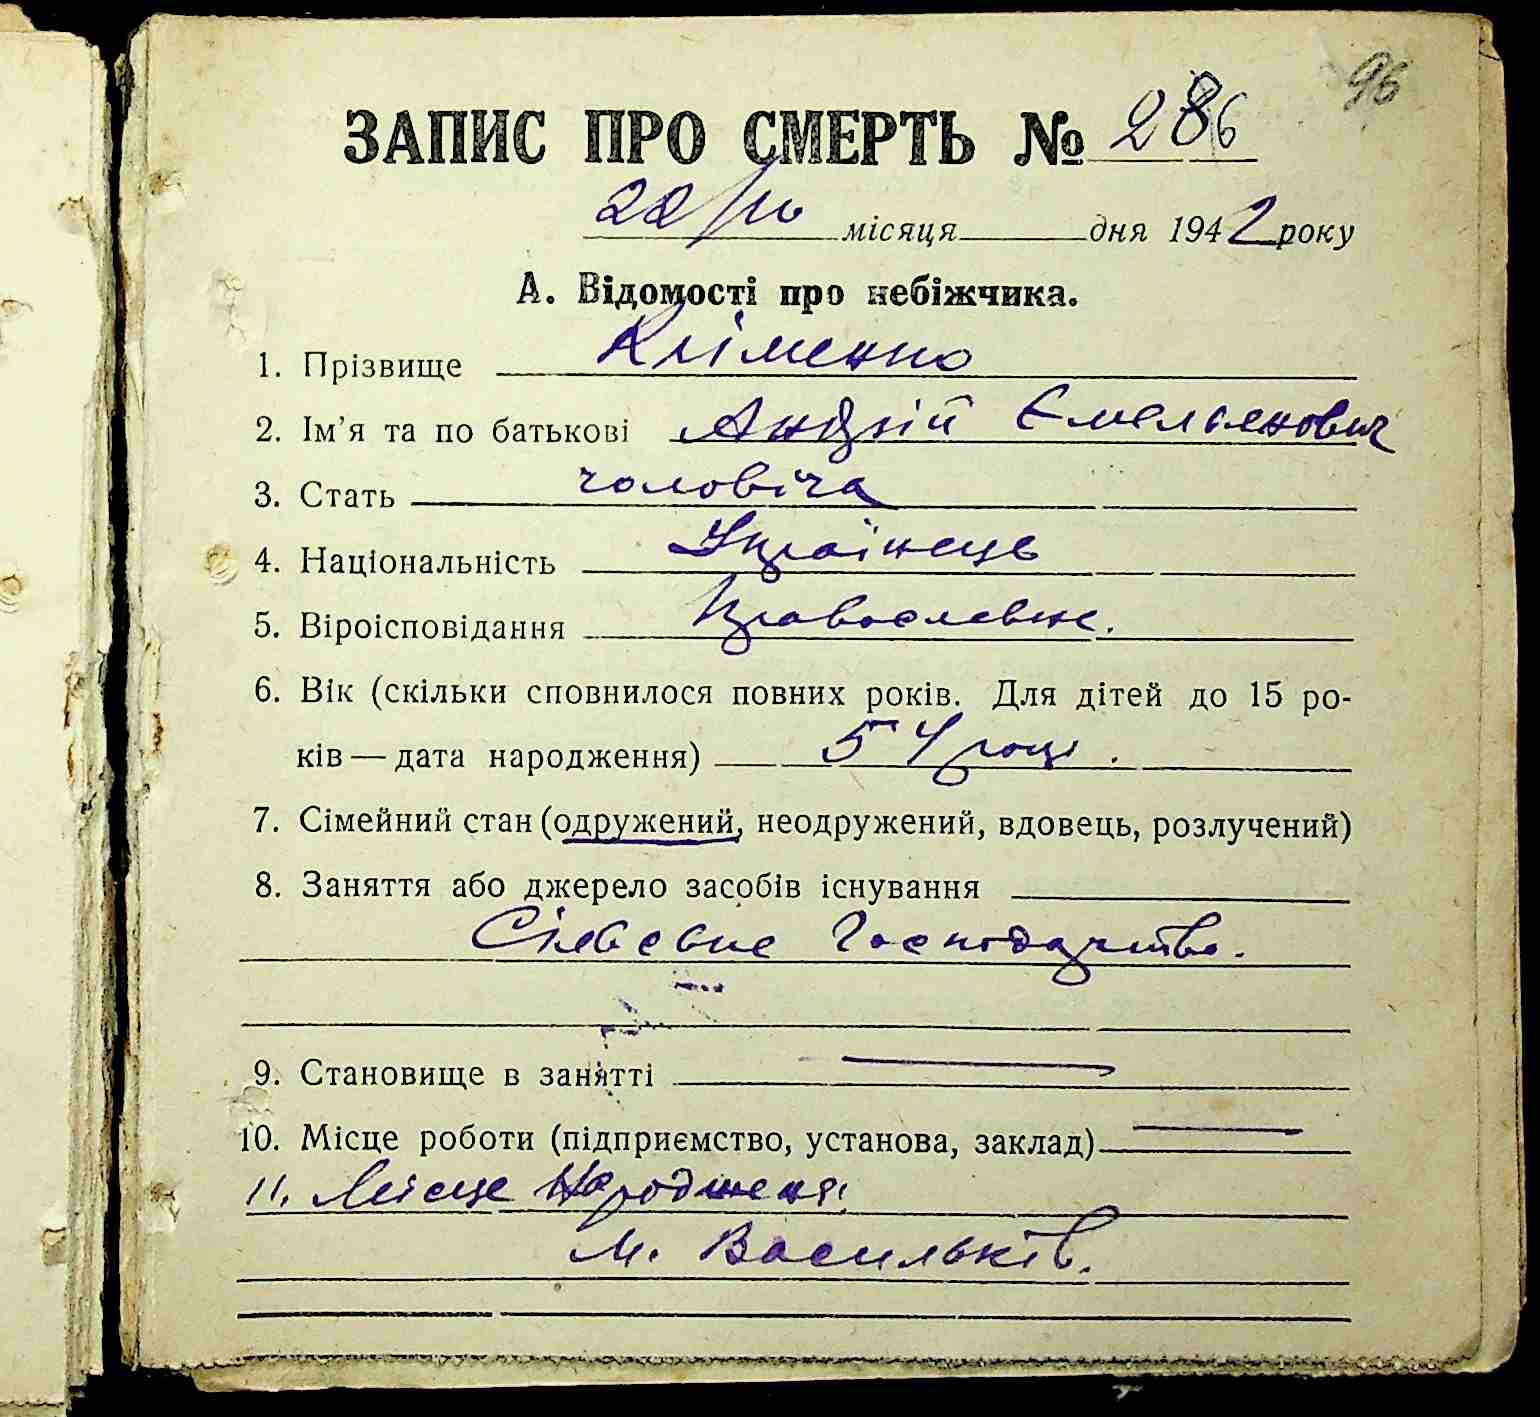 96
ЗАПИС ПРО СМЕРТЬ № 286
22/ місяця дня 1942 року
А. Відомості про небіжчика.
1. Прізвище Кліменко
2. Ім'я та по батькові Андрій Ємельянович
3. Стать чоловіча
4. Національність Українець
5. Віроісповідання православне.
6. Вік (скільки сповнилося повних років. Для дітей до 15 ро-
ків — дата народження) 54 роци.
7. Сімейний стан (одружений, неодружений, вдовець, розлучений)
8. Заняття або джерело засобів існування
Сільське Господарство.
9. Становище в занятті —
10. Місце роботи (підприємство, установа, заклад) —
11. Місце Народженя:
м. Васильків.